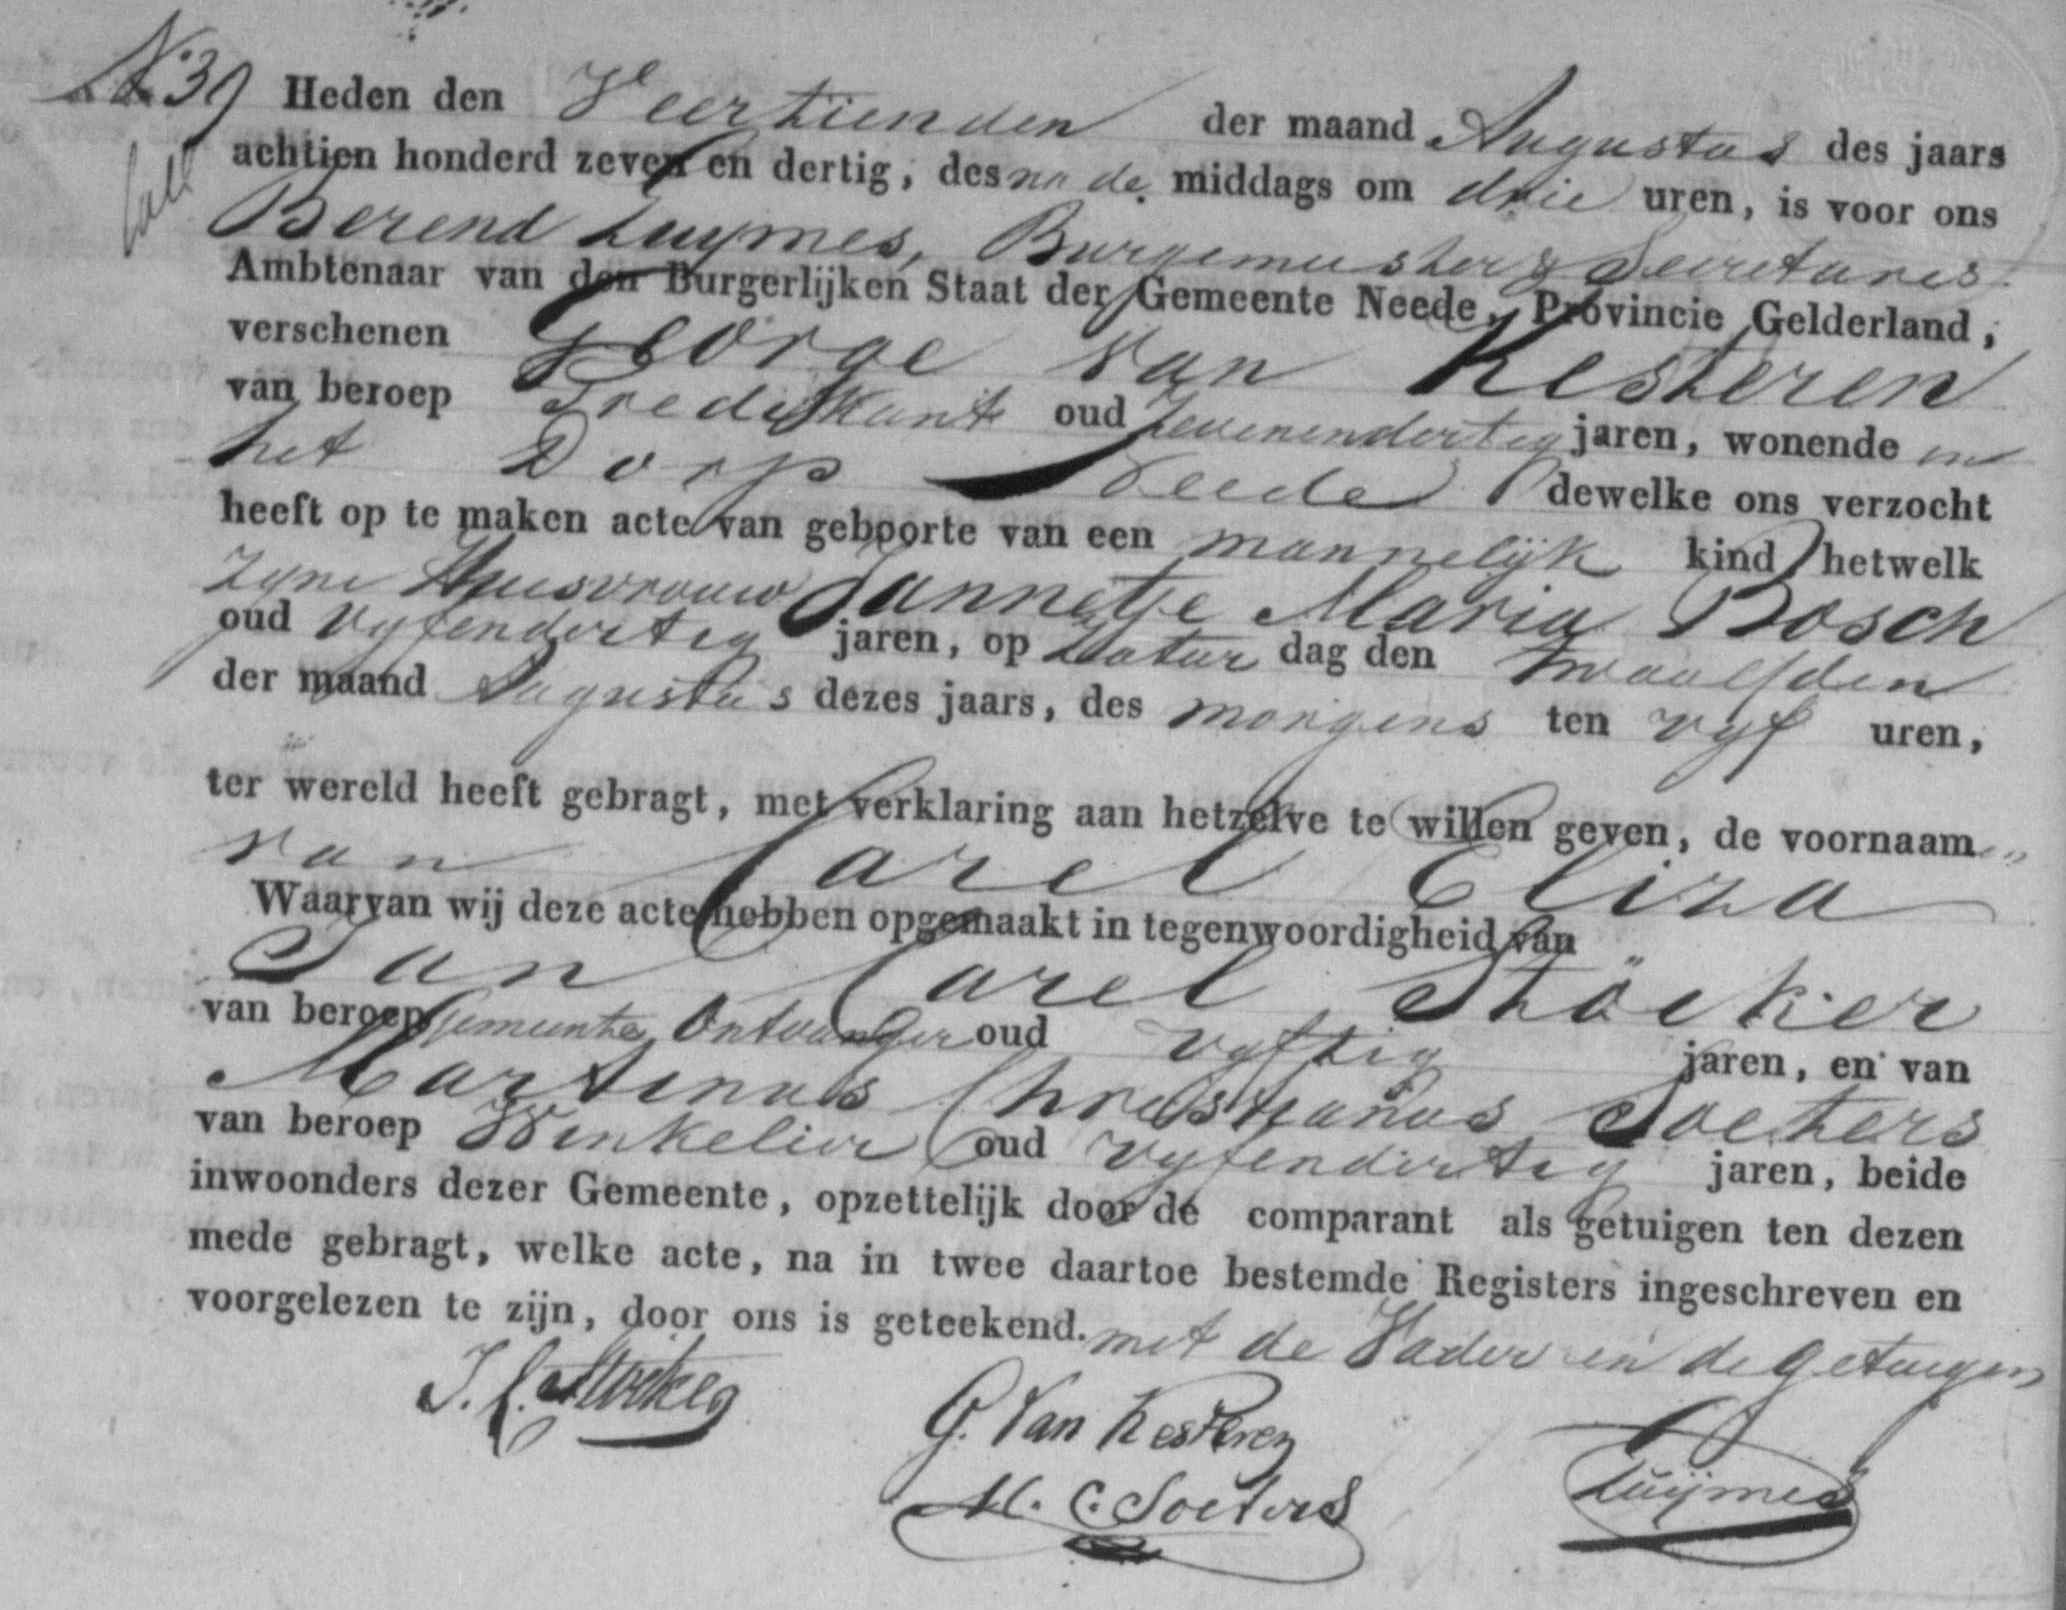 N.39 Heden den Veertienden der maand Augustus des jaars
achtien honderd zeven en dertig, des na de middags om drie uren, is voor ons
Berend Luymes, Burgemeester & Secretaris
Ambtenaar van den Burgerlijken Staat der Gemeente Neede, Provincie Gelderland,
verschenen George van Kesteren
van beroep Predikant oud zevenendertig jaren, wonende in
het Dorp Neede dewelke ons verzocht
heeft op te maken acte van geboorte van een mannelijk kind hetwelk
zyne Huisvrouw Jannetje Maria Bosch
oud vyfendertig jaren, op Zatur dag den twaalfden
der maand Augustus dezes jaars, des morgens ten vyf uren,
ter wereld heeft gebragt, met verklaring aan hetzelve te willen geven, de voornaam
van Carel Eliza
Waarvan wij deze acte hebben opgemaakt in tegenwoordigheid van
Jan Carel Stöcker
van beroep Gemeente Ontvanger oud vyftig jaren, en van
Martinus Christianus Soeters
van beroep Winkelier oud vyfendertig jaren, beide
inwoonders dezer Gemeente, opzettelijk door de comparant als getuigen ten dezen
mede gebragt, welke acte, na in twee daartoe bestemde Registers ingeschreven en
voorgelezen te zijn, door ons is geteekend. met de Vader en de getuigen
J. C. Stöcker
G. Van Kesteren
M. C. Soeters
Luijmes